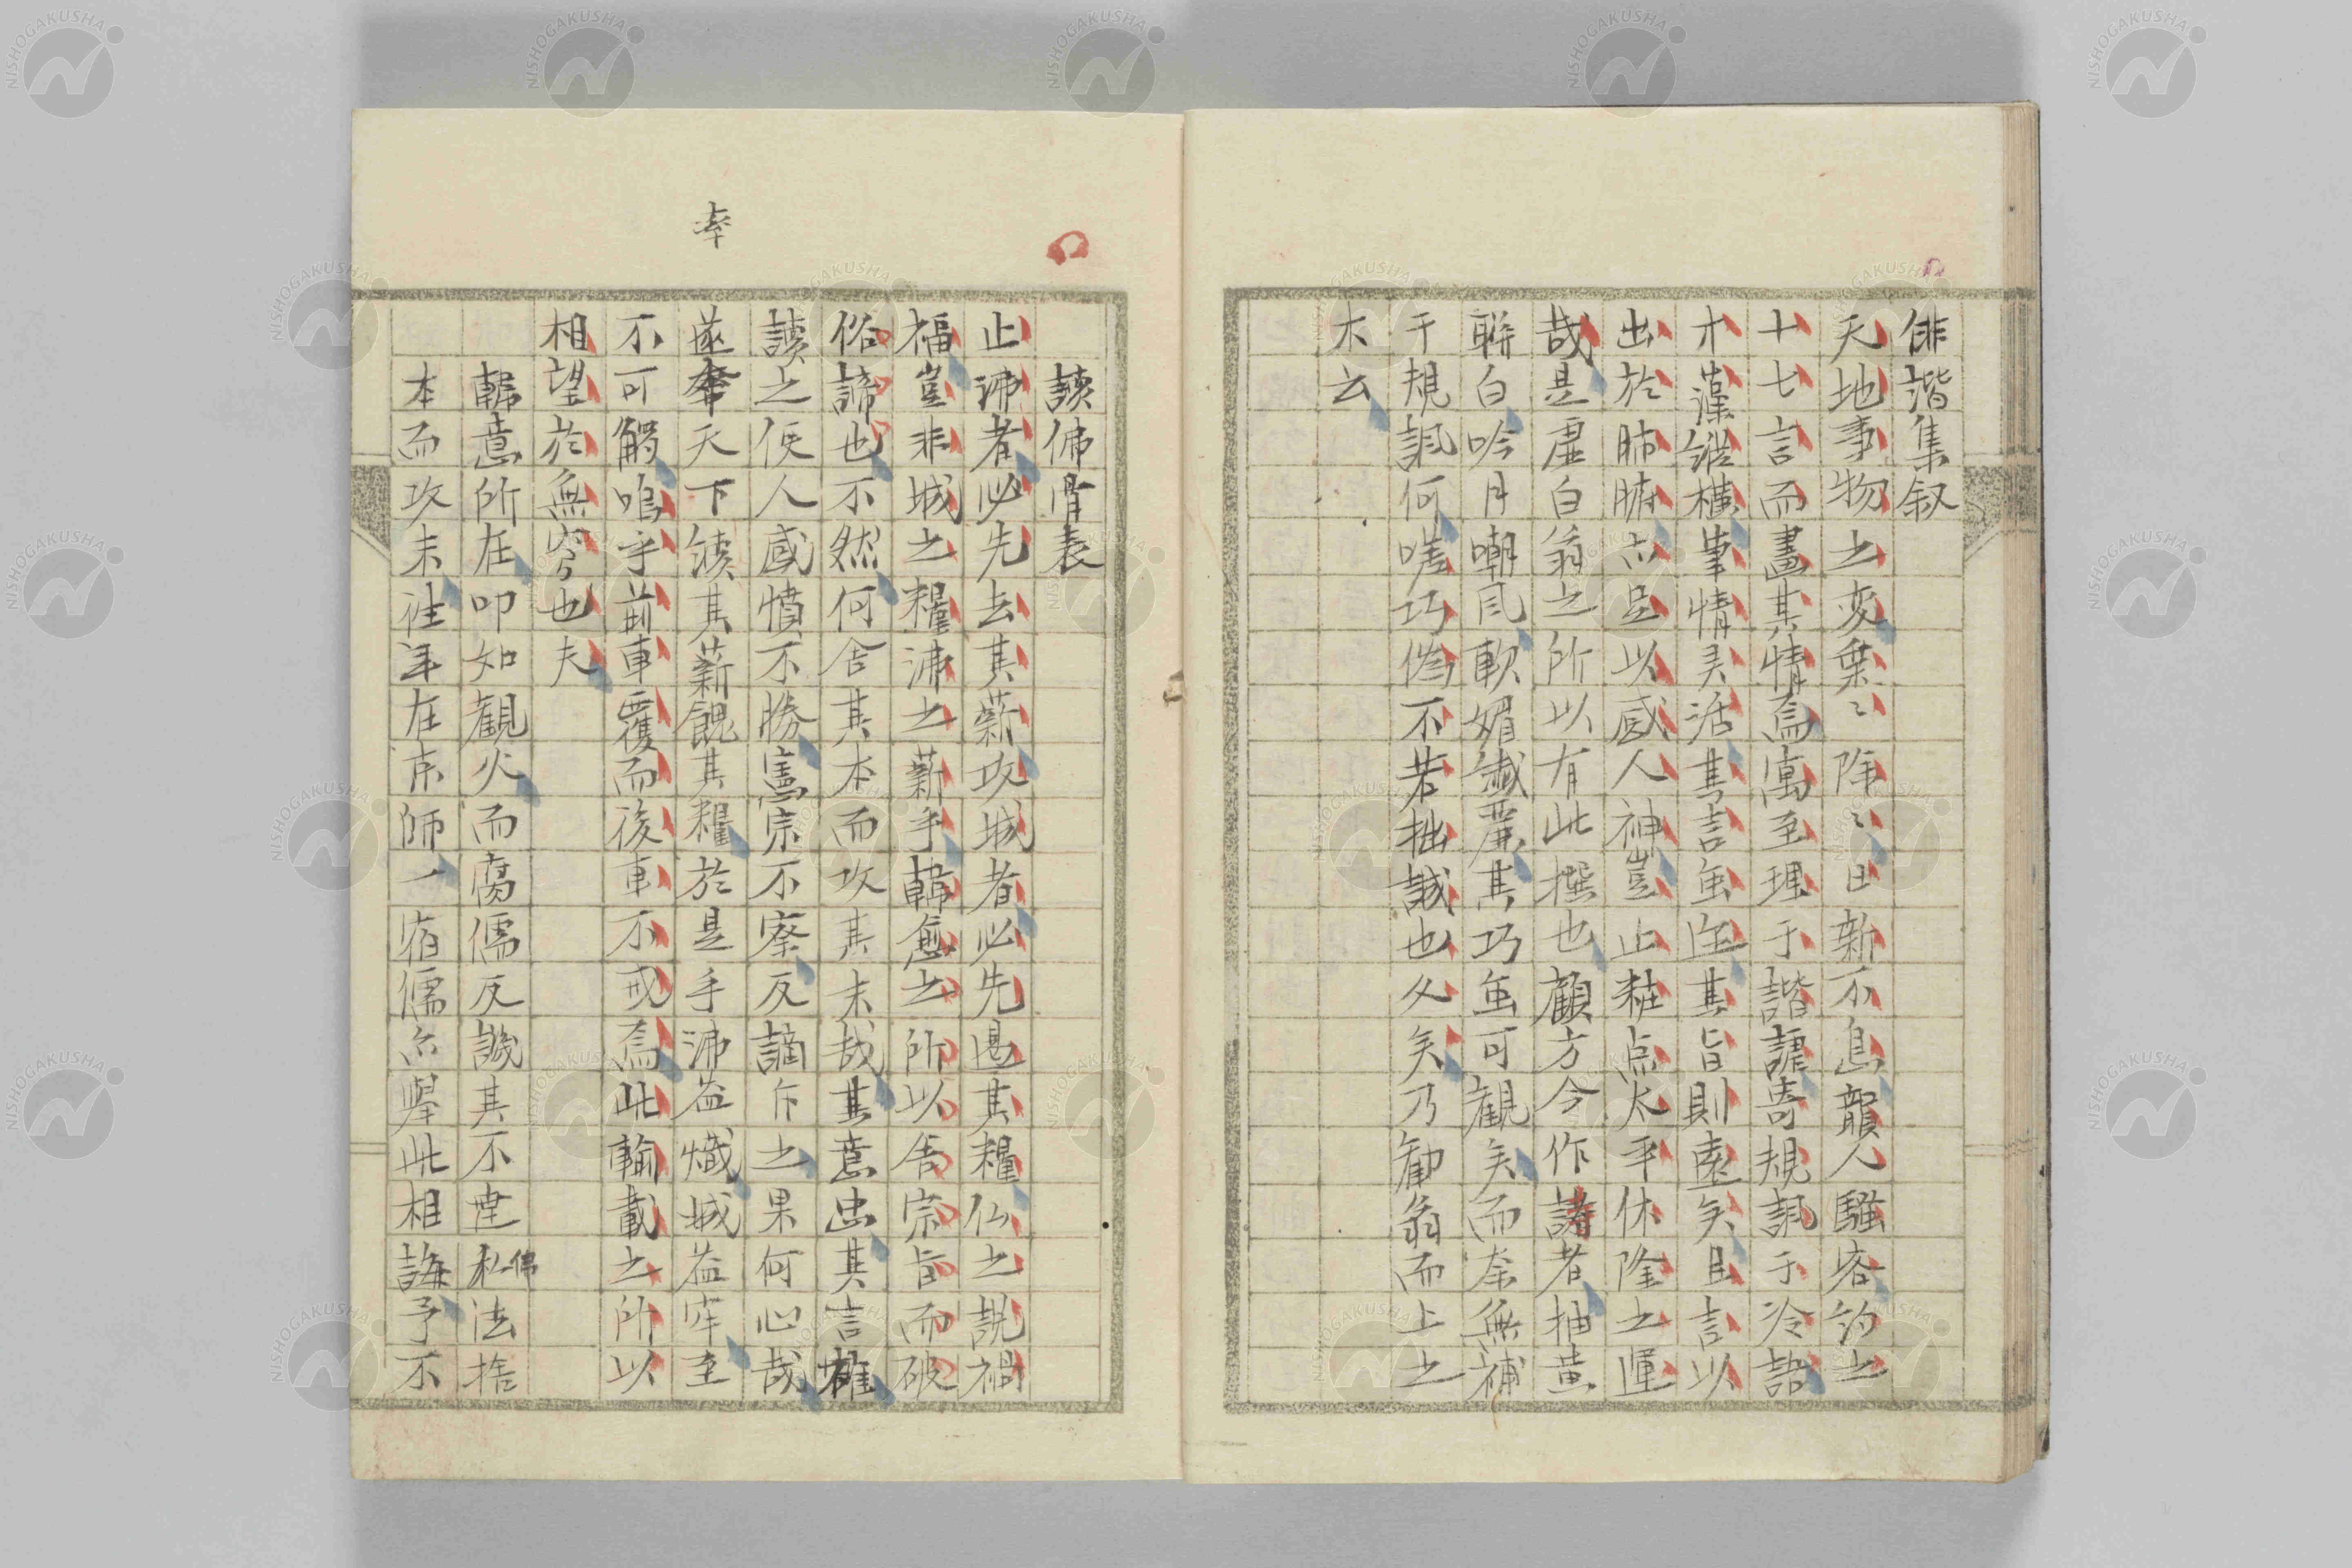 俳諧集叙
天地事物之変葉〻陳〻日新不息韻人騒客約之
十七言而畫其情爲寓至理于諧謔寄規諷于冷語
才藻縱横筆情灵活其言虽近其旨則遠矣且言以
出於肺腑亦足以感人神豈止粧点太平休隆之運
哉是虚白翁之所以有此撰也顧方今作詩者抽黄
聯白吟月嘲風軟媚纎麗其巧虽可観矣而奈無補
于規諷何嗟巧偽不若拙誠也久矣乃勧翁而上之
木云
讀佛骨表
止沸者必先去其薪攻城者必先遏其糧仏之説禍
福豈非城之糧沸之薪乎韓愈之所以舎宗旨而破
俗諦也不然何舎其本而攻其末哉其意忠其言雄
讀之使人感憤不勝憲宗不察反謫斥之果何心哉
遂奉天下続其薪餽其糧於是乎沸益熾城益牢至
不可觸嗚乎前車覆而後車不戒爲此輸載之所以
相望於無窮也夫
韓意所在叩如観火而腐儒反譏其不達佛私法捨
本而攻末往年在京師一宿儒亦擧此相誨予不
奉
NISHOGAKUSHA